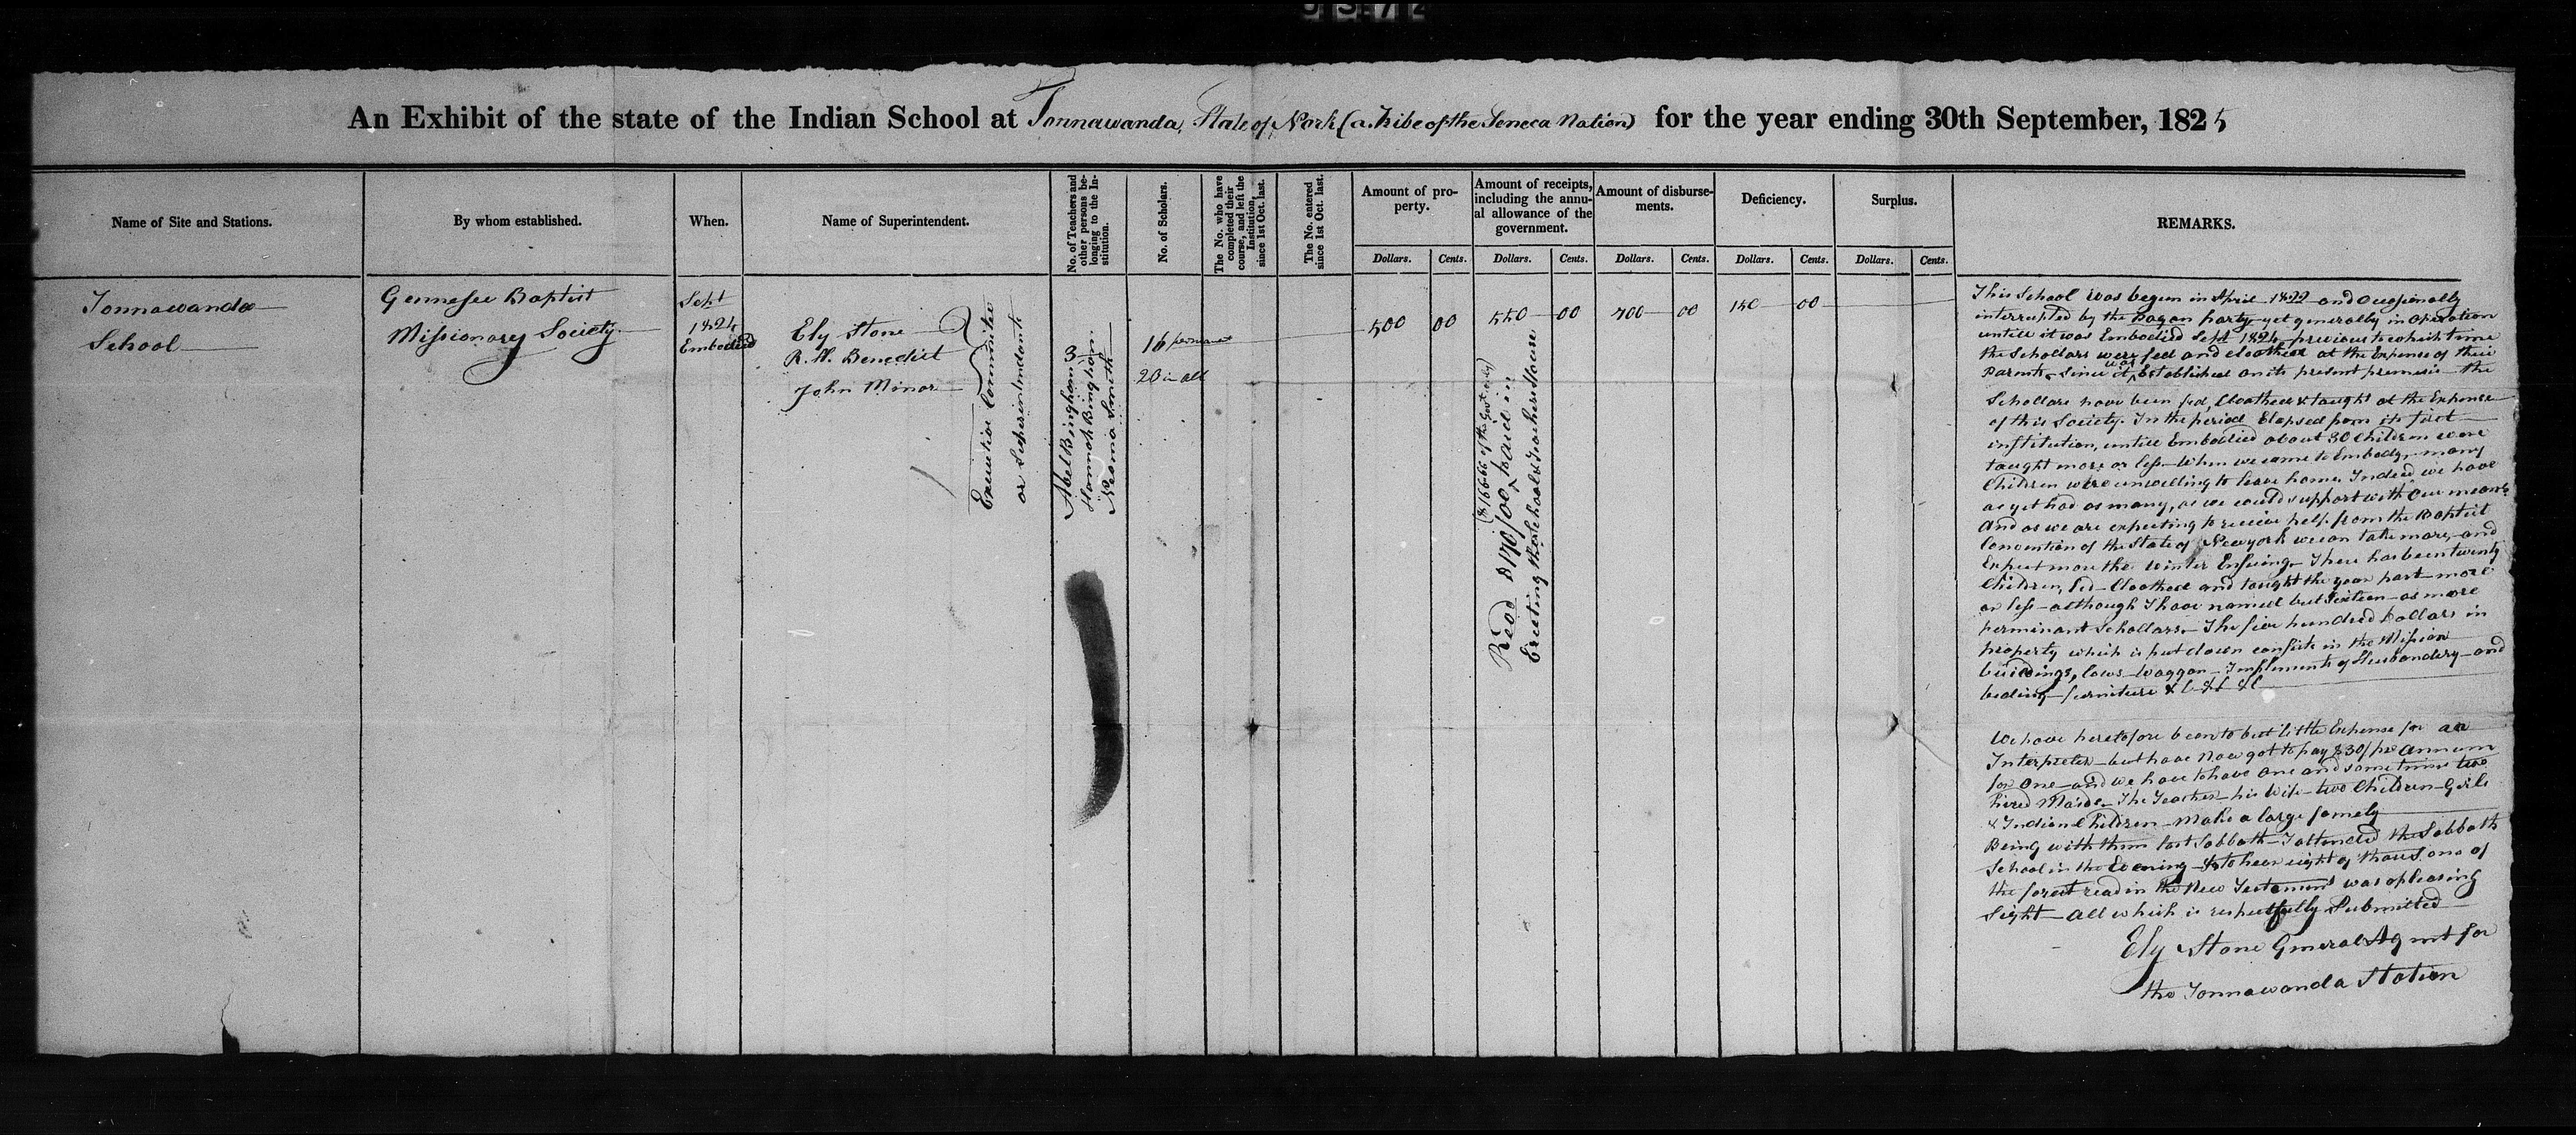 An Exhibit of the state of the Indian School at Tonnawanda, State of York (a tribe of the Seneca Nation) for the year ending 30th September, 1825
Name of Site and Stations.
By whom established.
When.
Name of Superintendent.
No. of Teachers and other persons belonging to the Institution.
No. of Scholars.
The No. who have completed their course, and left the Institution, since 1st Oct. last.
The No. entered since 1st Oct. last.
Amount of property.
Amount of receipts, including the annual allowance of the government.
Amount of disbursements.
Deficiency.
Surplus.
REMARKS.
Dollars. Cents. Dollars. Cents. Dollars. Cents. Dollars. Cents. Dollars. Cents.
Tonnawanda
School
Gennesee Baptist
Missionary Society
Sept
1824
Embodied
Ely Stone
R. W. Benedict
John Minor
Executive Committee
or Superintendants
3
Abel Bingham
Hannah Bingham
Neoma Smith
16 permanent
20 in all
500 00
550 00
700 00
150 00
($166.66 of the Govt only)
Recd $170/00 paid in
Erecting the School & Teachers House
This School was begun in April 1822 and occasionally
interrupted by the Pagan party yet generally in operation
untill it was Embodied Sept 1824, previous to which time
the Schollars were fed and cloathed at the Expense of their
Parents, Since it was Established on its present premises the
Schollars have been fed, Cloathed & taught at the Expense
of this Society. In the period Elapsed from its first
institution, untill Embodied about 30 Children were
taught more or less. When we came to Embody, many
Children were unwilling to leave home. Indeed we have
as yet had as many, as we could support with our means
And as we are expecting to receive help from the Baptist
Convention of the State of Newyork we can take more, and
Expect more the Winter Ensuing. There has been twenty
Children, fed Cloathed and taught the year past more
or less although I have named but Sixteen as more
perminant Schollars. The five hundred Dollars in
property which is put down consists in the Mission
buildings, Cows Waggon Implements of Husbandery and
beding furniture &c &c &c
We have heretofore been to but little Expense for an
Interpreter but have now got to pay $30/ per annum
for one and we have to have one and sometimes two
hired Maids. The Teacher his Wife two Children Girls
& Indian Children Make a large family
Being with them last Sabbath I attended the Sabbath
School in the Evening to hear eight of those sons of
the forest read in the New Testament was a pleasing
Sight All which is respectfully Submitted
Ely Stone General Agent for
the Tonnawanda Station